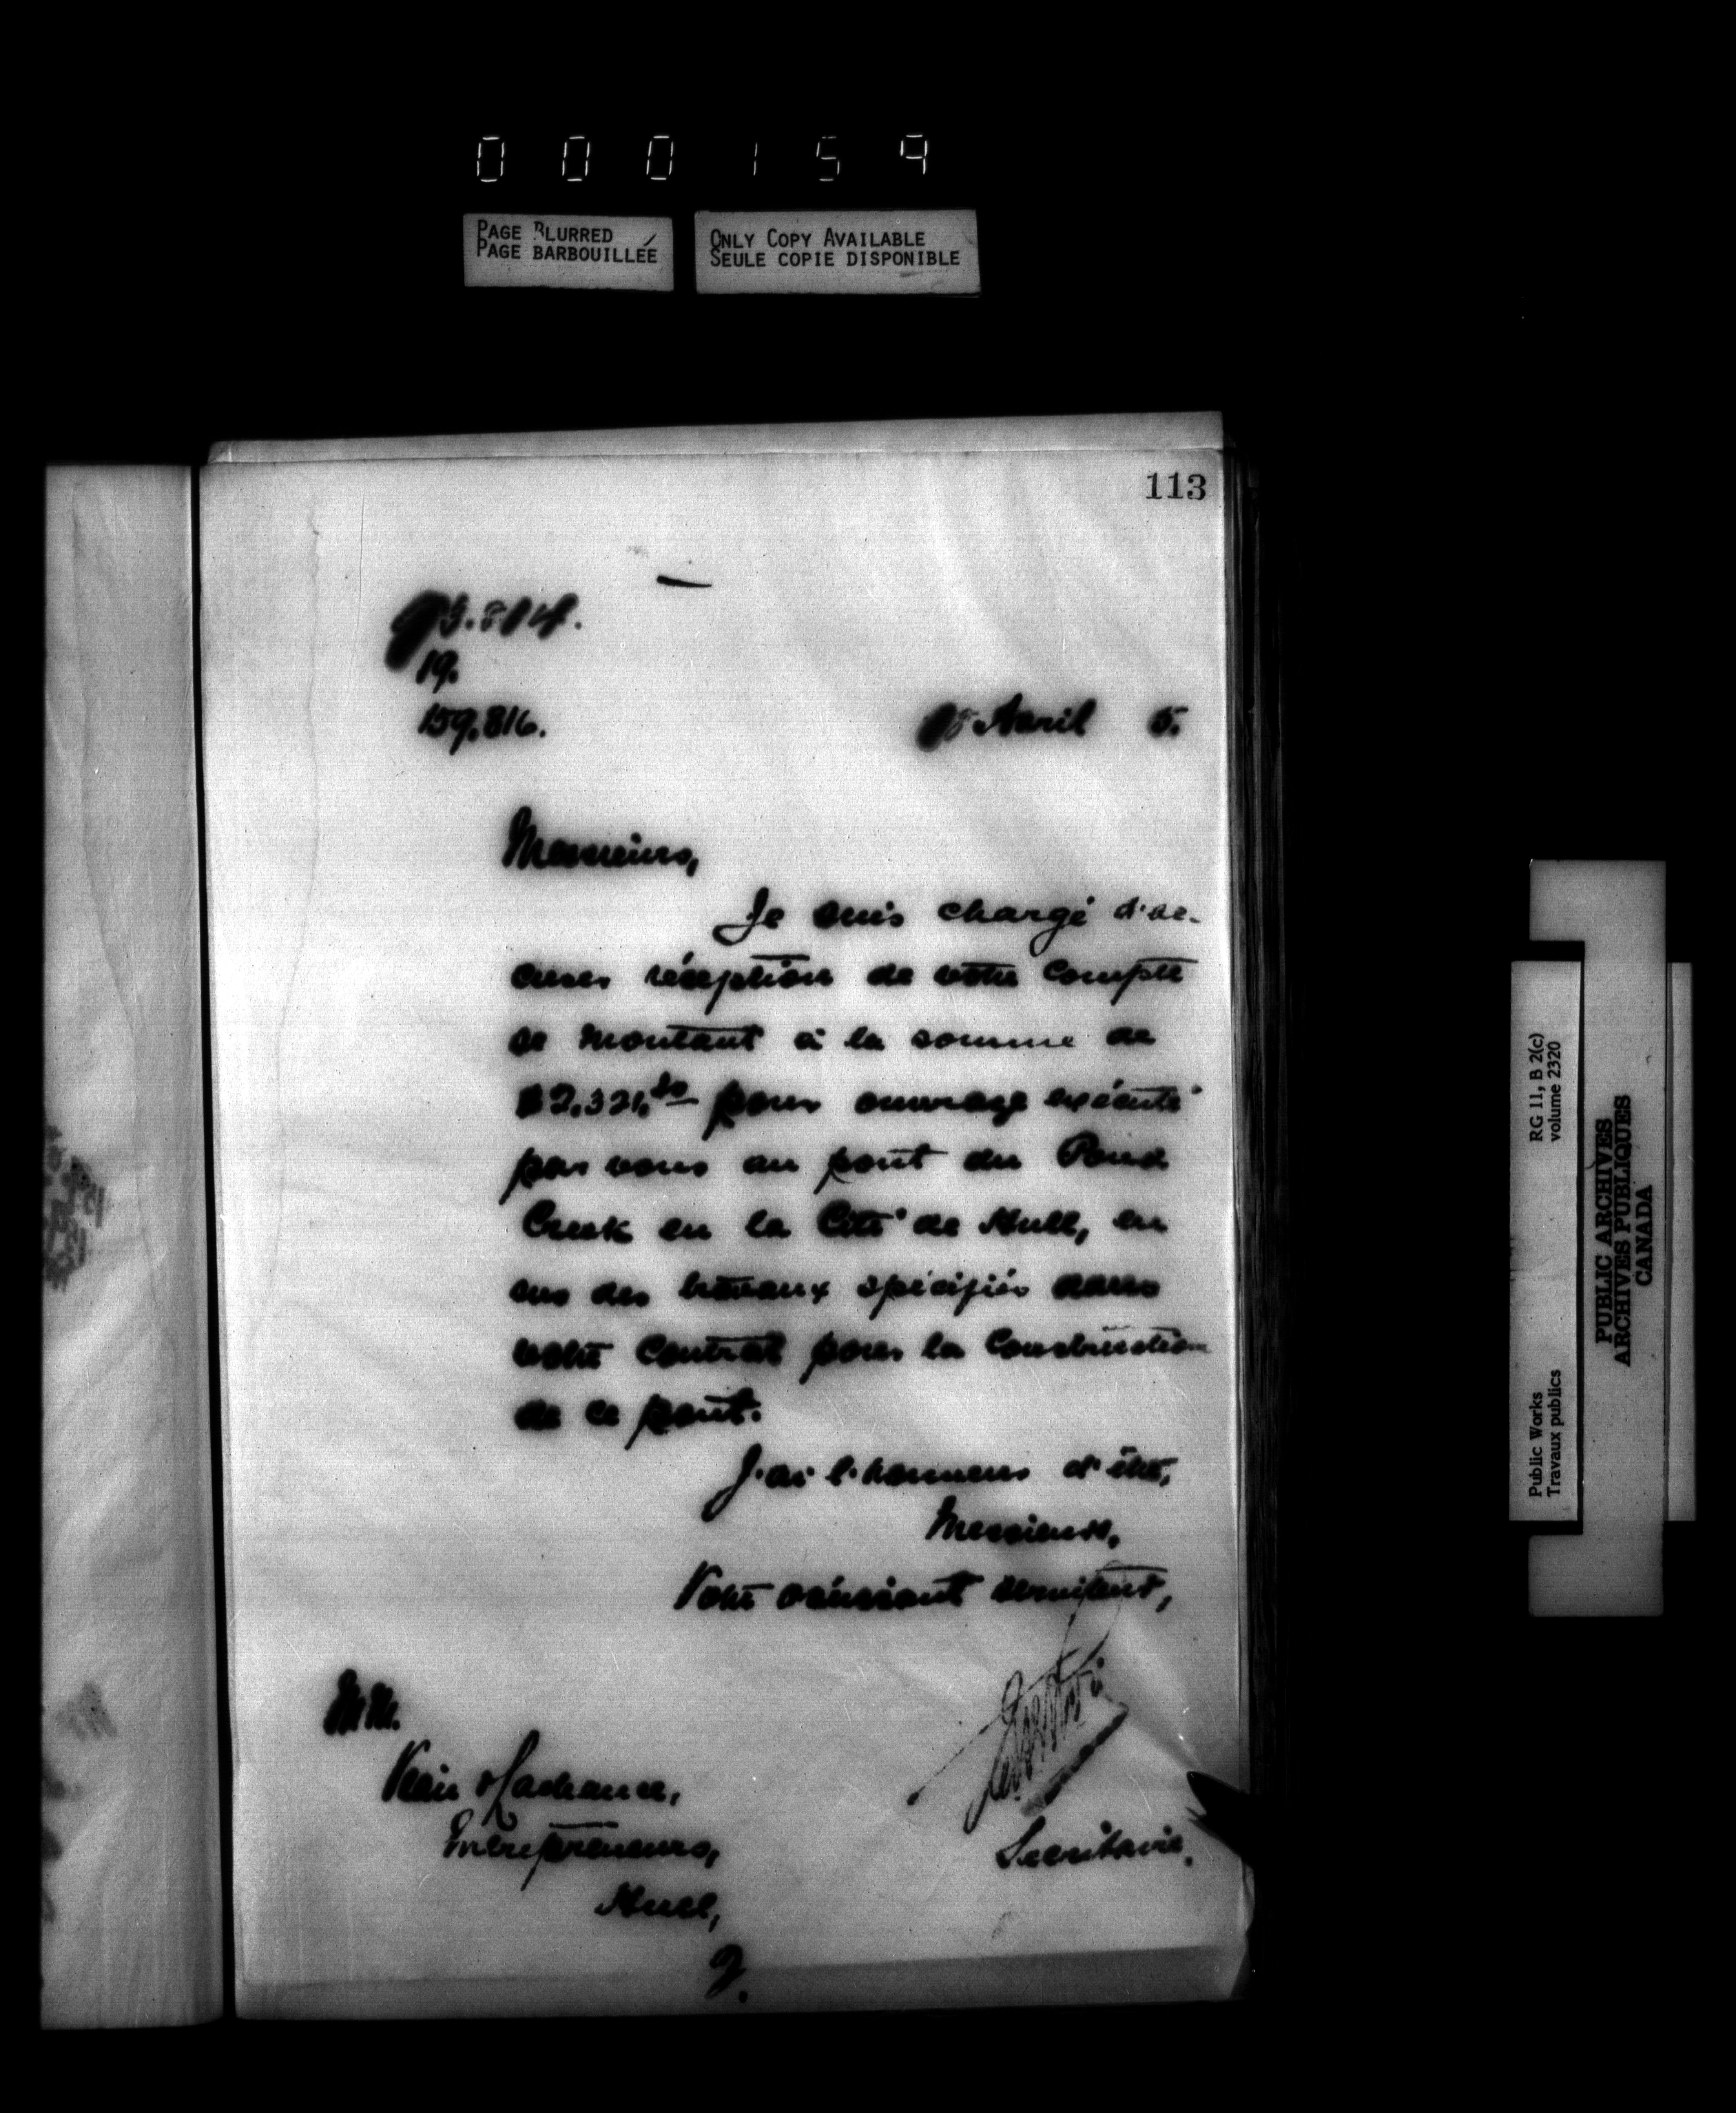 000159
PAGE BLURRED
PAGE BARBOUILLÉE
ONLY COPY AVAILABLE
SEULE COPIE DISPONIBLE
113
19.
159,816.
Avril 5.
Messieurs,
Je suis chargé d'ac-
cuser réception de votre compte
se montant à la somme de
$2,321.50 pour ouvrage exécuté
par vous au pont du Pond
Creek en la Cité de Hull, en
sus des travaux spécifiés dans
votre contrat pour la construction
de ce pont.
J'ai l'honneur d'être,
Messieurs,
Votre obéissant serviteur,
MM.
Lachance,
Entrepreneurs,
Secrétaire.
Hull,
Q.
Public Works
Travaux publics
RG 11, B 2(c)
volume 2320
PUBLIC ARCHIVES
ARCHIVES PUBLIQUES
CANADA